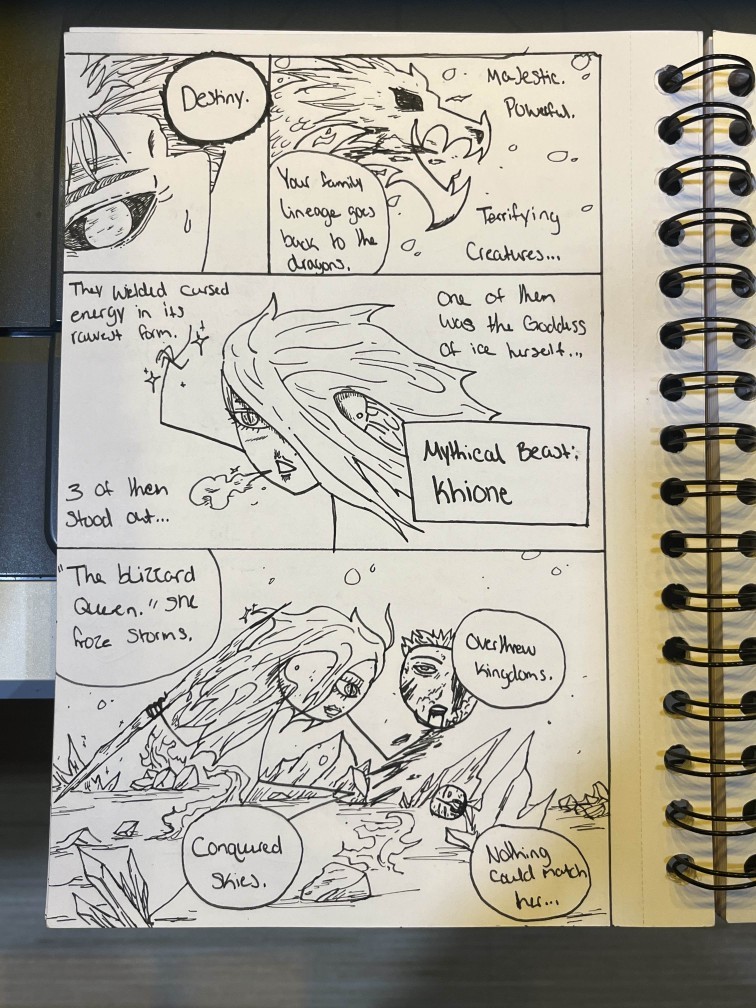 Destiny.
Majestic.
Powerful.
Your family
lineage goes
back to the
dragons.
Terrifying
Creatures...
They wielded cursed
energy in its
rawest form.
One of them
was the Goddess
of ice herself...
3 of them
stood out...
Mythical Beast:
Khione
"The blizzard
Queen." she
froze storms.
Overthrew
kingdoms.
Conquered
Skies.
Nothing
could match
her...